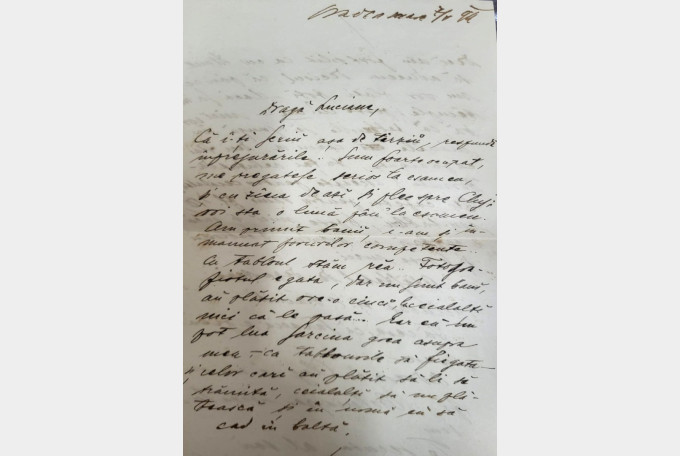 Dragă Luciane,
Că î-ți scriu așa de târziu, răspund
împrejurările. Sunt foarte ocupat,
mă pregătesc serios la examen,
și cu ziua de azi, și plec spre Cluj.
voi sta o lună pân' la examen.
Am primit banii, i-am și în-
mânat forurilor competente.
Cu tabloul stăm rău. Fotogra-
fiatul e gata, dar nu sunt bani,
au plătit vre-o cinci, la ceialalți
nici că le pasă.. Iar eu nu
pot lua sarcina grea asupra
mea – ca tablourile să fie gata
și celor cari au plătit să li se
trămită, ceialalți să nu plă-
tească și în urmă eu să
cad în baltă.